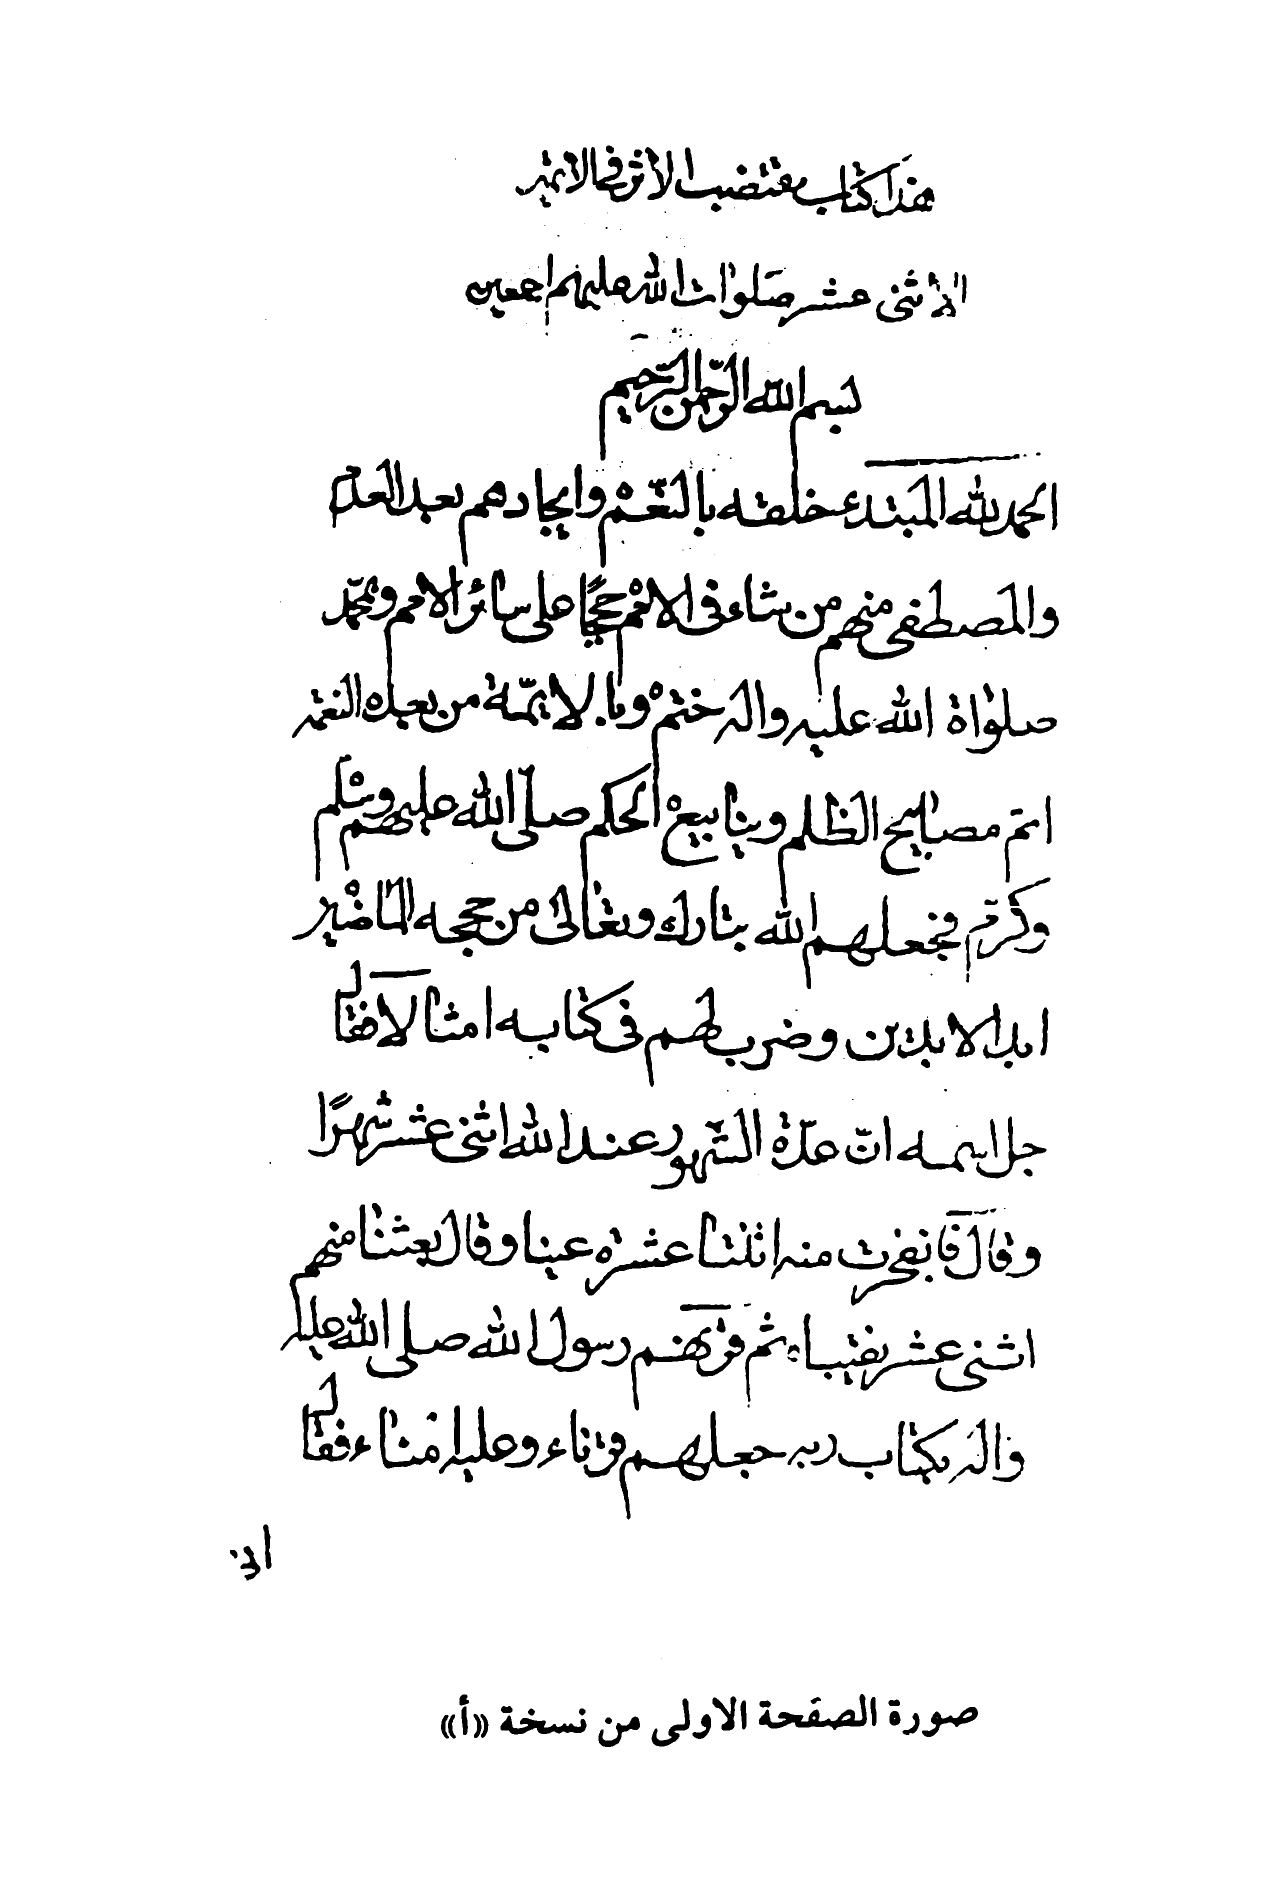 هذا كتاب مقتضب الأثر في الائمة
الأثنى عشر صلوات الله عليهم اجمعين
بسم الله الرّحمن الرّحيم
الحمد لله المبتدء خلقه بالنّعم وايجادهم بعد العدم
والمصطفى منهم من شاء فى الامم حججًا على سائر الامم وبمحمّد
صلواة الله عليه واله ختم وبالايمّة من بعده النعمة
اتم مصابيح الظلم وينابيع الحكم صلّى الله عليهم وسلم
وكرم فجعلهم الله تبارك وتعالى من حججه الماضين
ابد الابدين وضرب لهم فى كتابه امثالا فقال
جل اسمه انّ عدّة الشّهور عند الله اثنى عشر شهرًا
وقال فانفجرت منه اثلتنا عشرة عينا وقال بعثنا منهم
اثنى عشر نقيباء ثم قرنهم رسول الله صلى الله عليه
واله بكتاب ربه جعلهم قرناء وعليه امناء فقال
انى
صورة الصفحة الاولى من نسخة «أ»